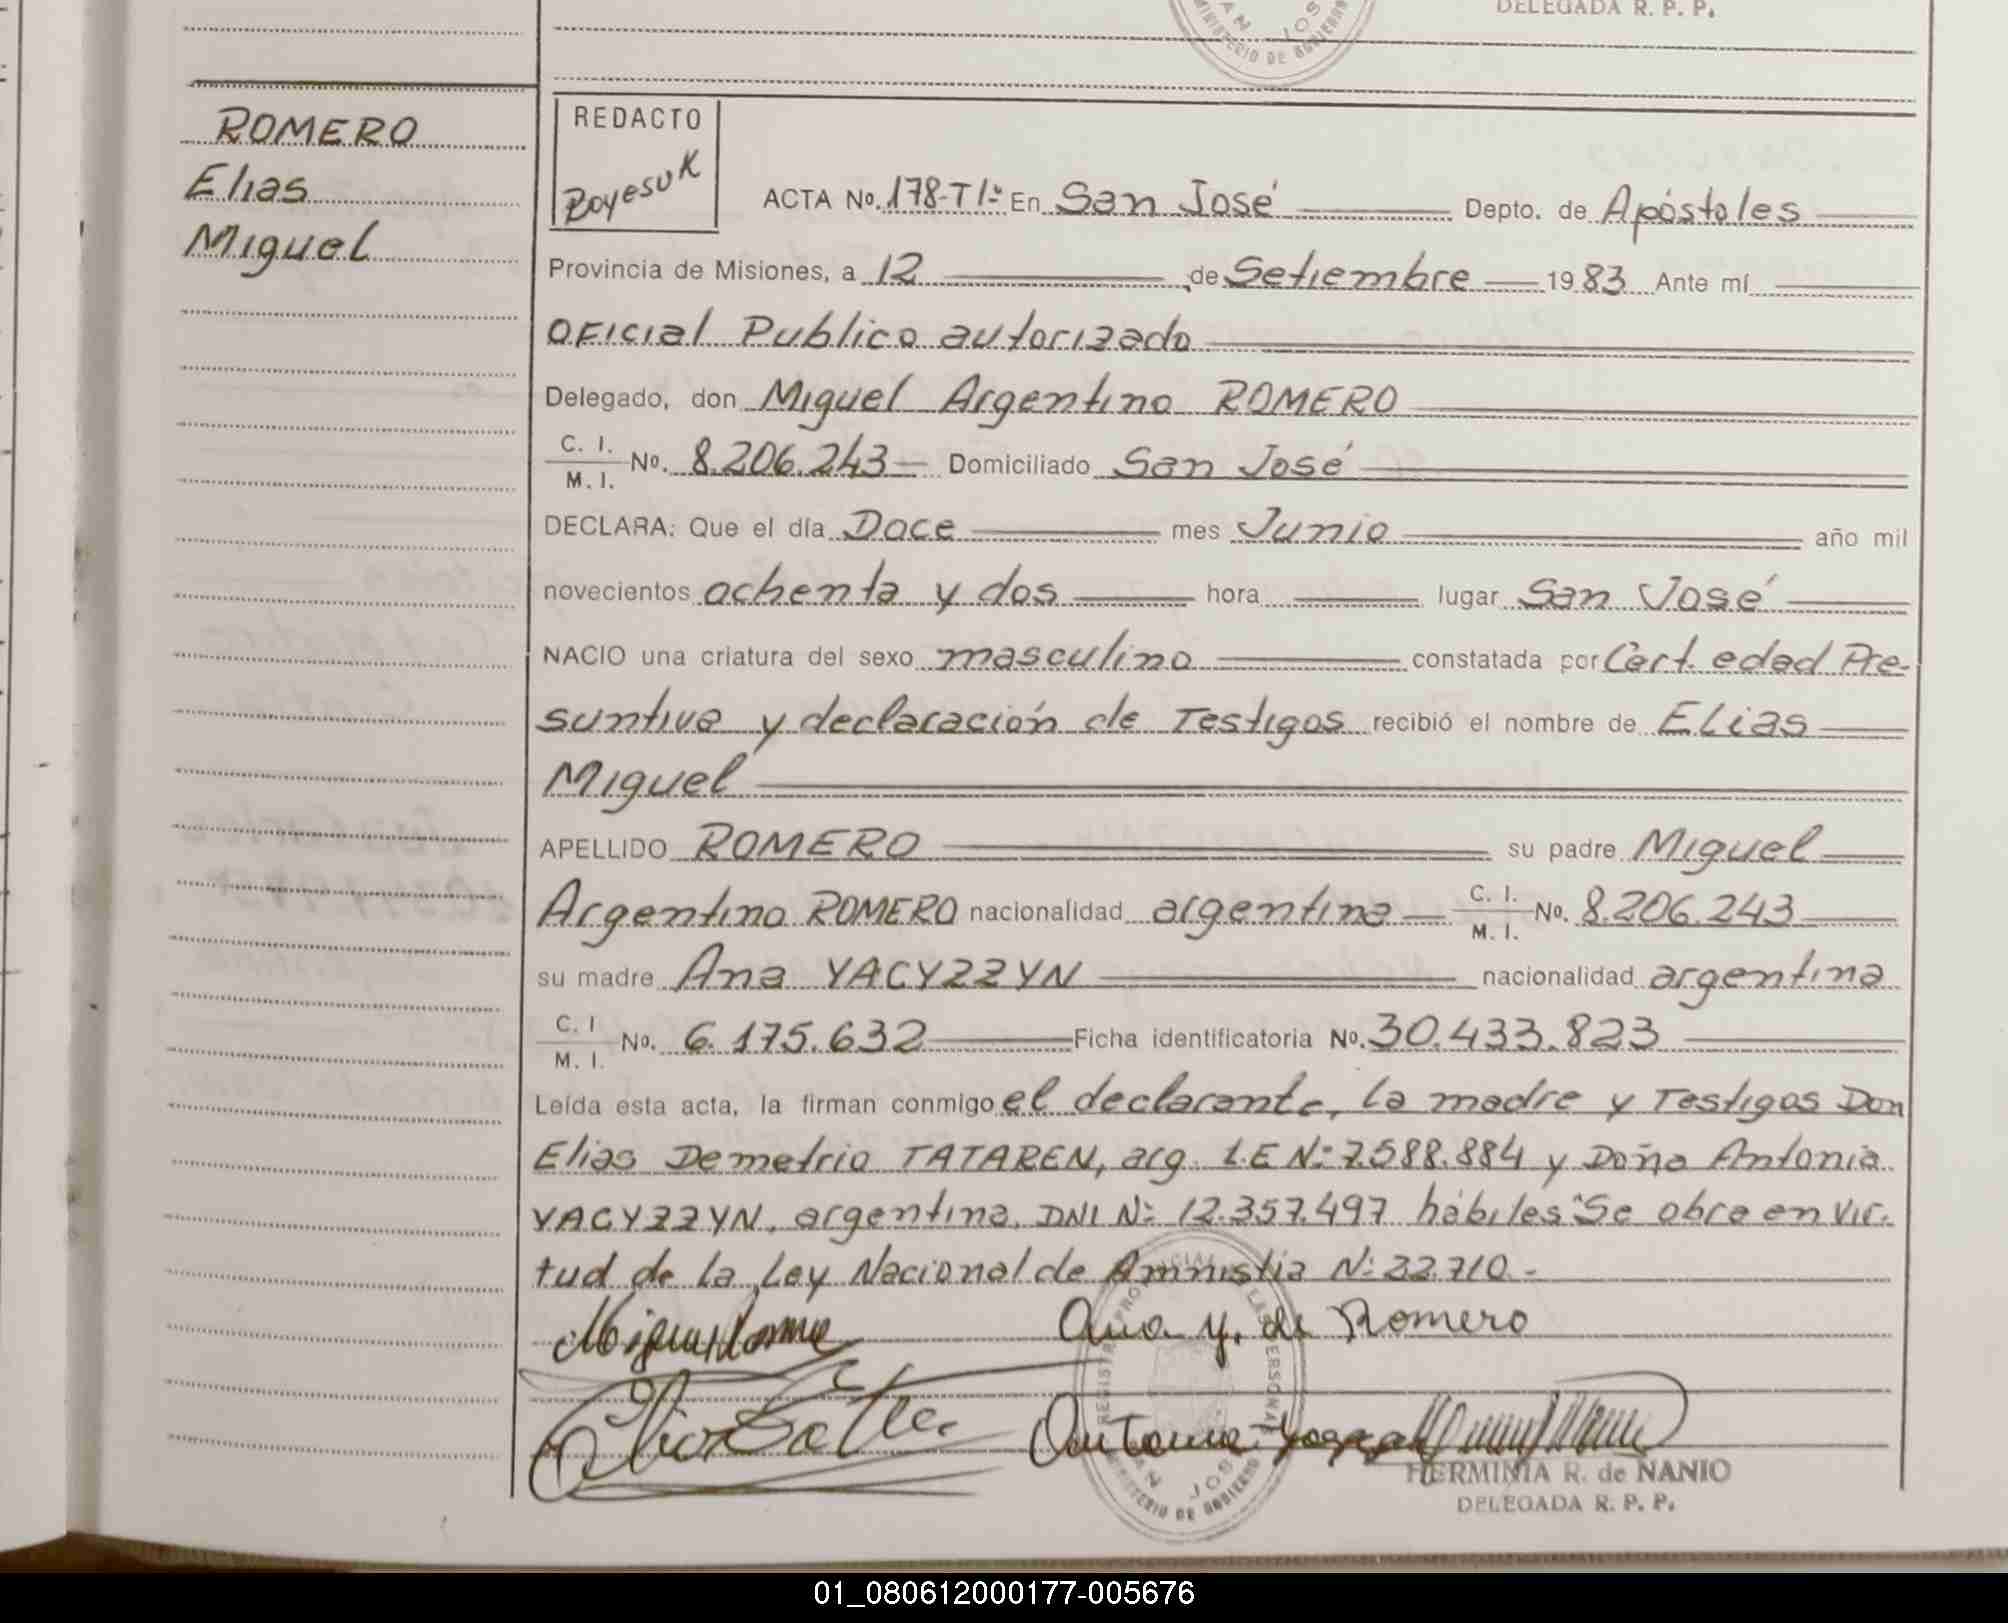 DELEGADA R. P. P.
SAN JOSE
MINISTERIO DE GOBIERNO
ROMERO
Elias
Miguel
REDACTO
Boyesuk
ACTA No. 178-T1º En San José Depto. de Apóstoles
Provincia de Misiones, a 12 de Setiembre 1983 Ante mí
OFICIAL Publico autorizado
Delegado, don Miguel Argentino ROMERO
C. I.
M. I. No. 8.206.243 Domiciliado San José
DECLARA: Que el día Doce mes Junio año mil
novecientos ochenta y dos hora lugar San José
NACIO una criatura del sexo masculino constatada por Cert. edad Pre-
suntiva y declaración de Testigos recibió el nombre de ELias
Miguel
APELLIDO ROMERO su padre Miguel
Argentino ROMERO nacionalidad argentina C. I. M. I. No. 8.206.243
su madre Ana YACYZZYN nacionalidad argentina
C. I
M. I. No. 6.175.632 Ficha identificatoria No. 30.433.823
Leída esta acta, la firman conmigo el declarante, la madre y Testigos Don
Elias Demetrio TATAREN, arg. L.E Nº 7.588.884 y Doña Antonia
YACYZZYN, argentina, DNI Nº 12.357.497 hábiles "Se obra en vir-
tud de la Ley Nacional de Amnistia Nº 22.710.-
Miguel Romero Ana Y. de Romero
Antonia
REGISTRO PROVINCIAL DE LAS PERSONAS
SAN JOSE
MINISTERIO DE GOBIERNO
HERMINIA R. de NANIO
DELEGADA R. P. P.
01_080612000177-005676